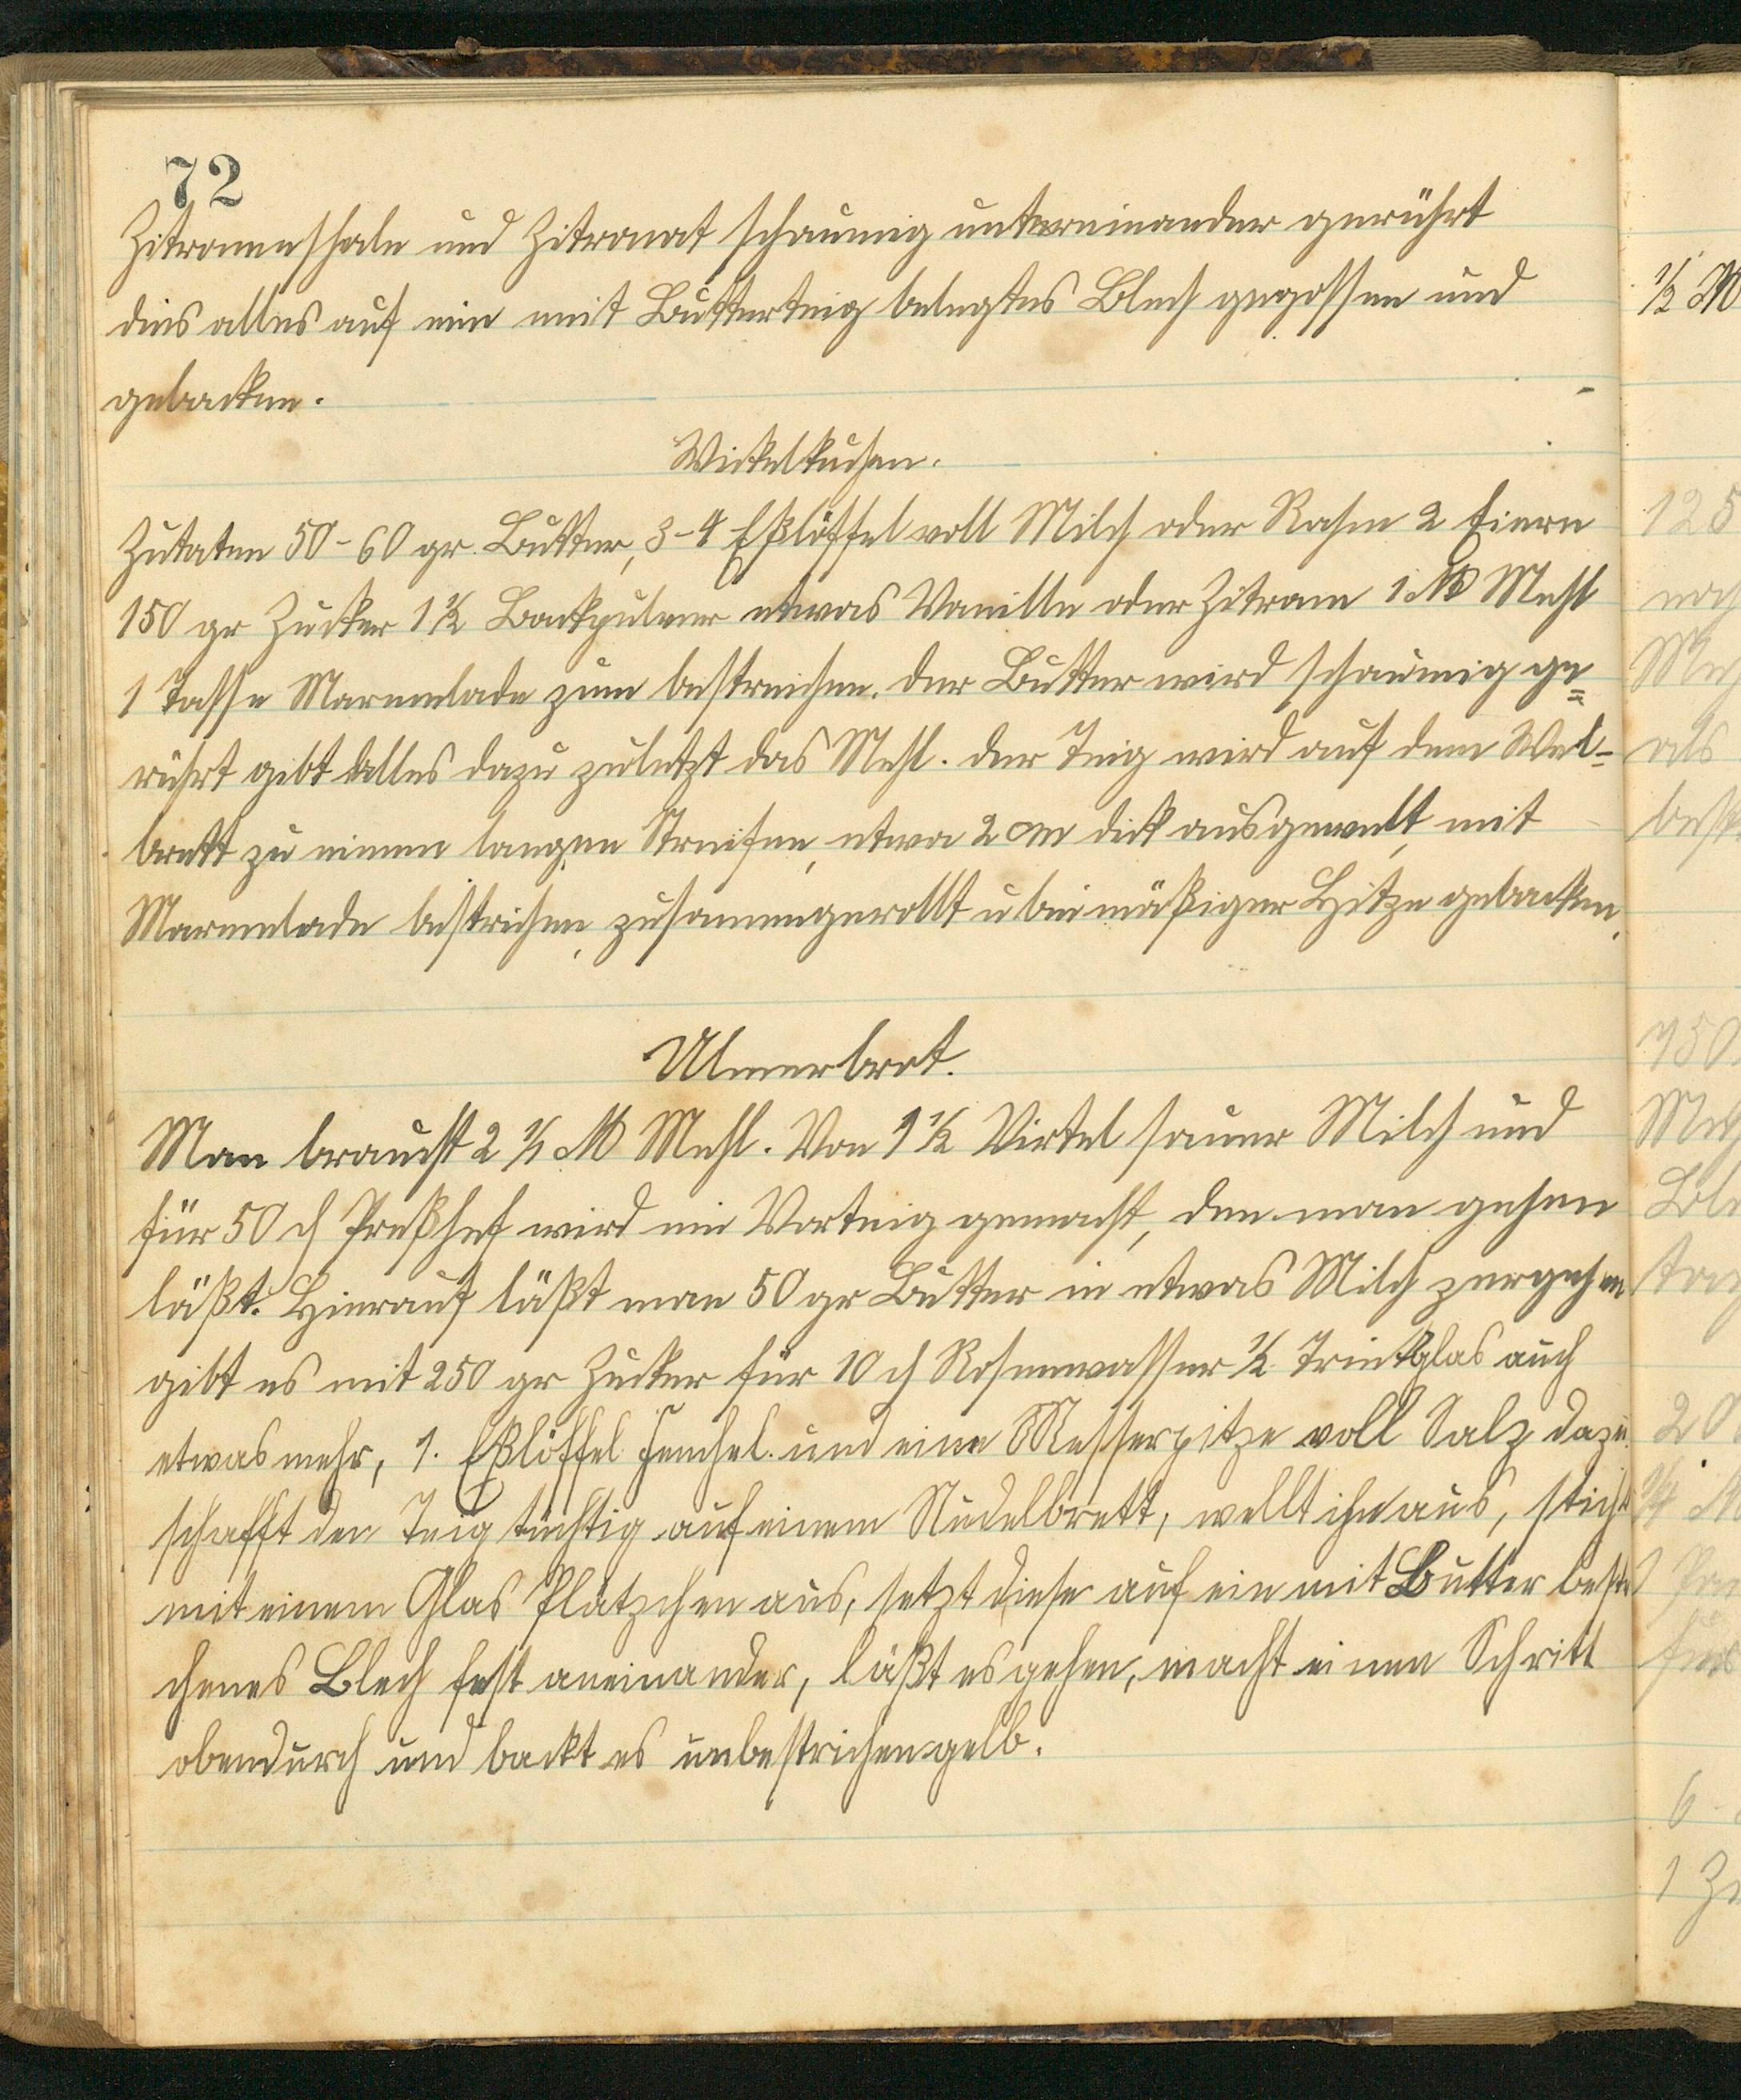 72
Zitronenschale und Zitronat schaumig untereinander gerührt
dies alles auf ein mit Butterteig belegtes Blech gegossen und
gebacken.
Wickelkuchen.
Zutaten 50-60 gr. Butter, 3-4 Eßlöffel voll Milch oder Rahm 2 Eiern
150 gr Zucker 1½ Backpulver etwas Vanille oder Zitrone 1 ℔ Mehl
1 Tasse Marmelade zum bestreichen. der Butter wird schaumig ge=
rührt gibt alles dazu zuletzt das Mehl. der Teig wird auf dem Wel=
brett zu einem langen Streifen, etwa 2 cm dick ausgewellt, mit
Marmelade bestrichen, zusammengerollt u bei mäßiger Hitze gebacken.
Ulmerbrot.
Man braucht 2 ½ ℔ Mehl. Von 1 ½ Virtel sauer Milch und
für 50 ch Preßhef wird ein Vorteig gemacht, den man gehen
läßt. Hierauf läßt man 50 gr Butter in etwas Milch zergehen
gibt es mit 250 gr Zucker für 10 ch Rosenwasser ½ Trinkglas auch
etwas mehr, 1. Eßlöffel Fenchel. und eine Messerpitze voll Salz dazu.
schafft den Teig tüchtig auf einem Nudelbrett, wellt ihn aus, sticht
mit einem Glas Plätzchen aus, setzt diese auf ein mit Butter bestri
chenes Blech fest aneinander, läßt es gehen, macht einen Schritt
obendurch und backt es unbestrichen gelb.